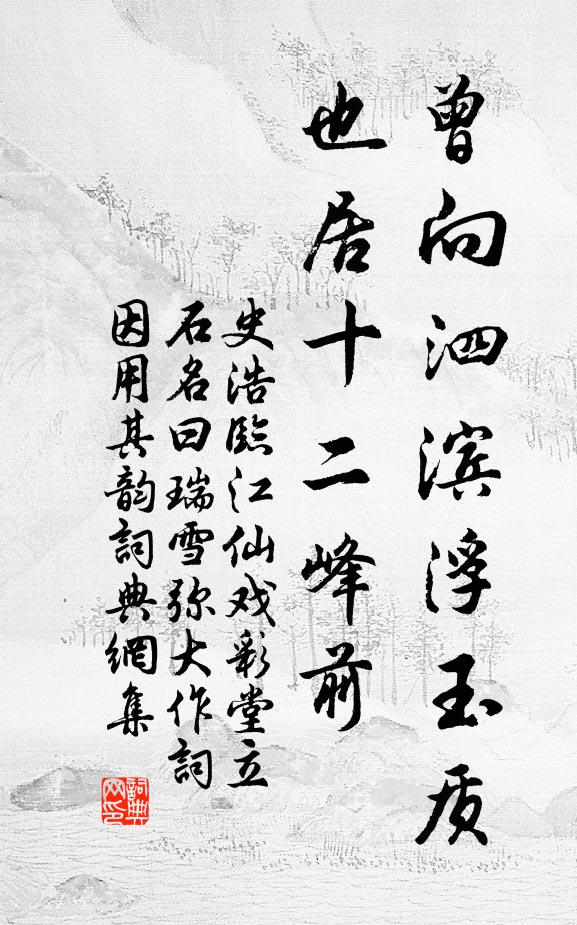 曾向泗滨浮玉质
也居十二峰前
史浩臨江仙戏彩堂立
石名曰瑞雪弥大作詞
因用其韵詞典網集
詞典网印